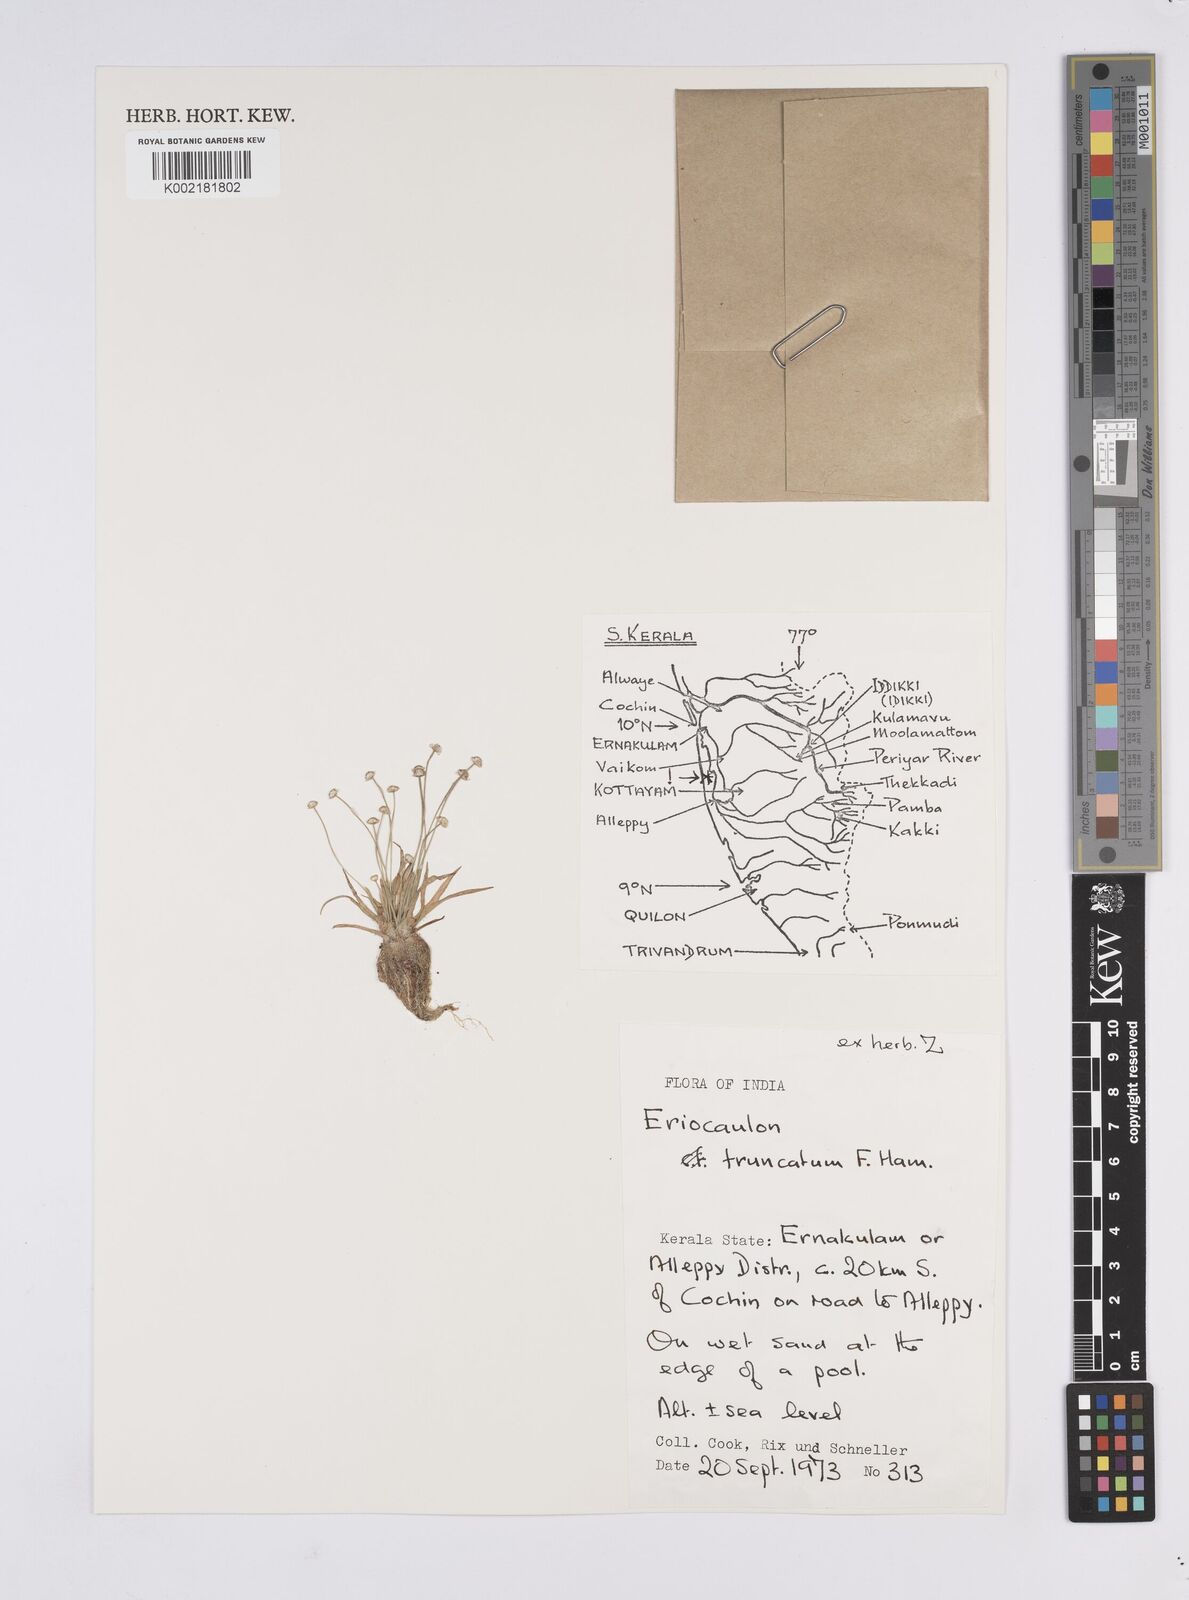 HERB. HORT. KEW.
ROYAL BOTANIC GARDENS KEW
K002181802
S. KERALA
77°
Alwaye
Cochin
10°N
ERNAKULAM
Vaikom
KOTTAYAM
Alleppy
9°N
QUILON
TRIVANDRUM
IDDIKKI
(IDIKKI)
Kulamavu
Moolamattom
Periyar River
Thekkadi
Pamba
Kakki
Ponmudi
ex herb. Z
FLORA OF INDIA
Eriocaulon
cf. truncatum F. Ham.
Kerala State: Ernakulam or
Alleppy Distr., c. 20km S.
of Cochin on road to Alleppy.
On wet sand at the
edge of a pool.
Alt. ± sea level
Coll. Cook, Rix und Schneller
Date 20 Sept. 1973 No 313
centimetres
M001011
Don Williams
Density
Royal Botanic Gardens
Kew
copyright reserved
0 1 2 3 4 5 6 7 8 9 10
cm